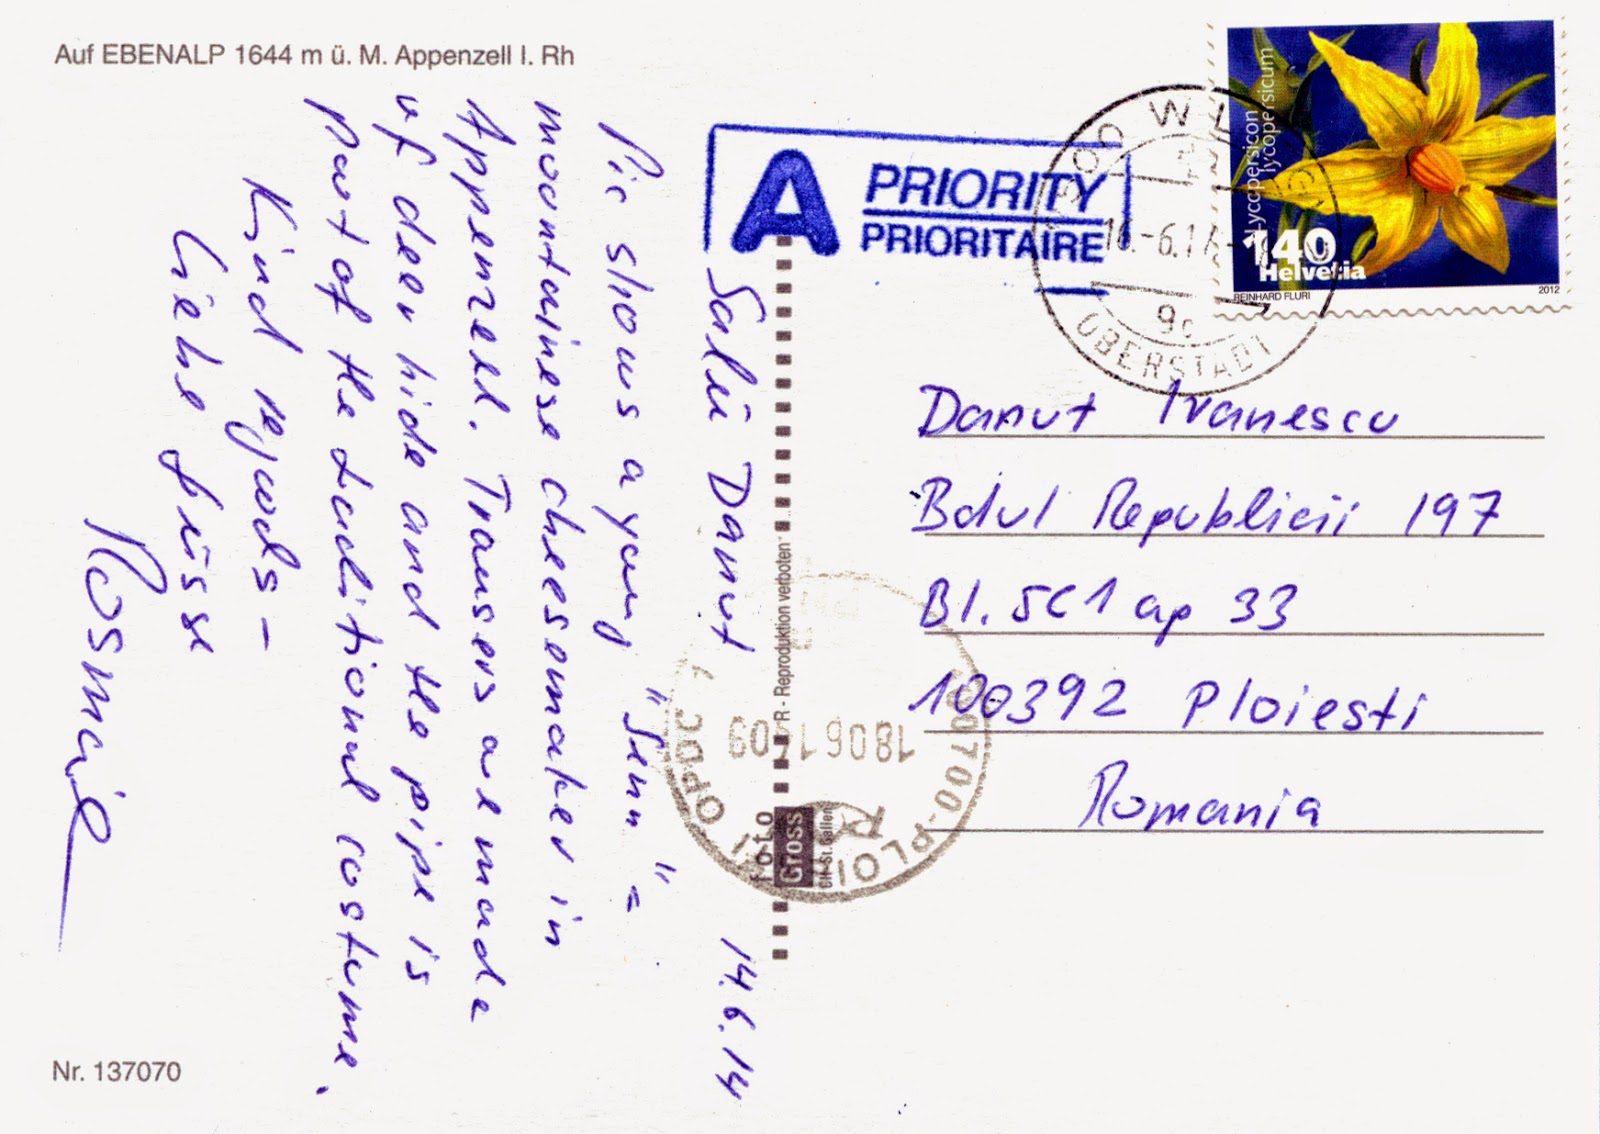 Auf EBENALP 1644 m ü. M. Appenzell I. Rh
A PRIORITY
PRIORITAIRE
Lycopersicon
lycopersicum
140
Helvetia
REINHARD FLURI
2012
9500 WIL
9500
ÜBERSTADT
Salü Danut 14.6.14
Pic shows a young "Senn" =
mountainese cheesemaker in
Appenzell. Trousers are made
of deer hide and the pipe is
part of the traditional costume.
Kind regards -
Liebe Grüsse
Rosmarie
Danut Ivanescu
Bdul Republicii 197
Bl. 5C1 ap 33
100392 Ploiesti
Romania
R - Reproduktion verboten
foto
Gross
CH-St. Gallen
PLOIESTI OPDC 1
Nr. 137070